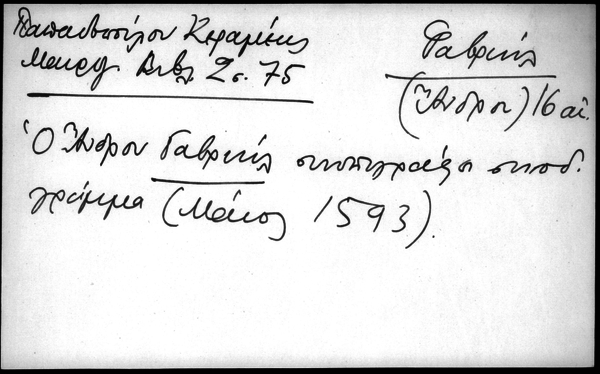 Παπαδοπούλου Κεραμέως
Μαυρογ. Βιβλ 2 σ. 75
Γαβριήλ
(Ἄνδρου) 16 αἰ.
Ὁ Ἄνδρου Γαβριήλ συνυπογράφει συνοδ.
γράμμα (Μάιος 1593).